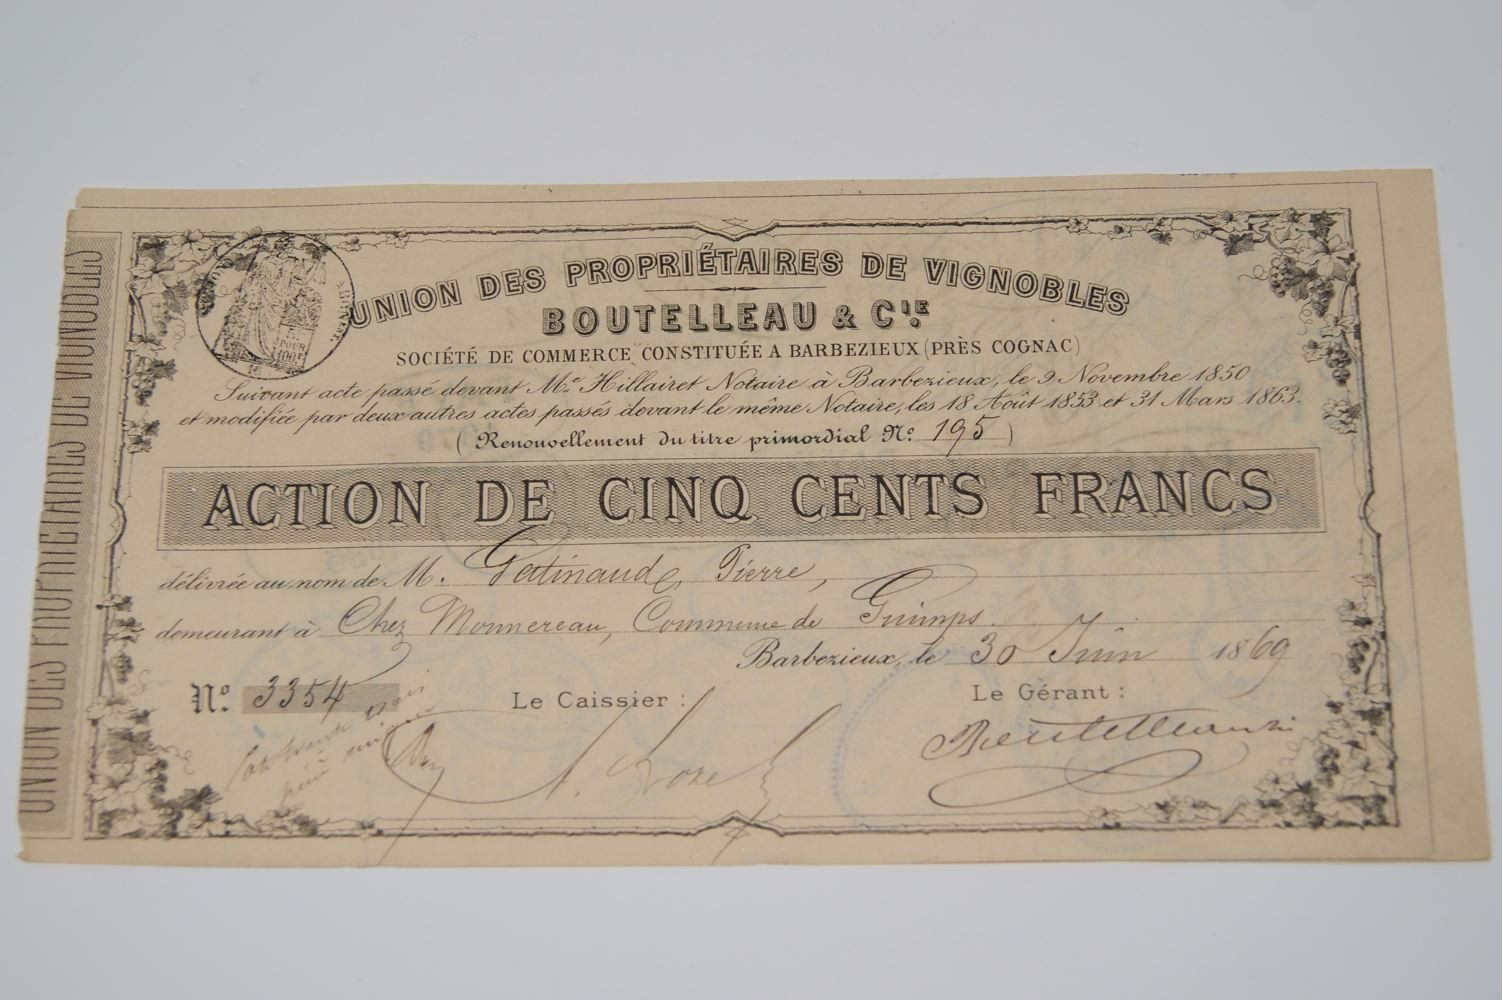 UNION DES PROPRIÉTAIRES DE VIGNOBLES
UNION DES PROPRIÉTAIRES DE VIGNOBLES
BOUTELLEAU & CIE.
SOCIÉTÉ DE COMMERCE CONSTITUÉE A BARBEZIEUX (PRÈS COGNAC)
Suivant acte passé devant Me. Hillairet Notaire à Barbezieux, le 9 Novembre 1850
et modifiée par deux autres actes passés devant le même Notaire, les 18 Août 1853 et 31 Mars 1863.
(Renouvellement du titre primordial No. 195)
ACTION DE CINQ CENTS FRANCS
délivrée au nom de M. Gatinaud, Pierre,
demeurant à Chez Monnereau, Commune de Guimps.
Barbezieux, le 30 Juin 1869
No. 3354
Le Caissier :
Le Gérant :
POUR
100F